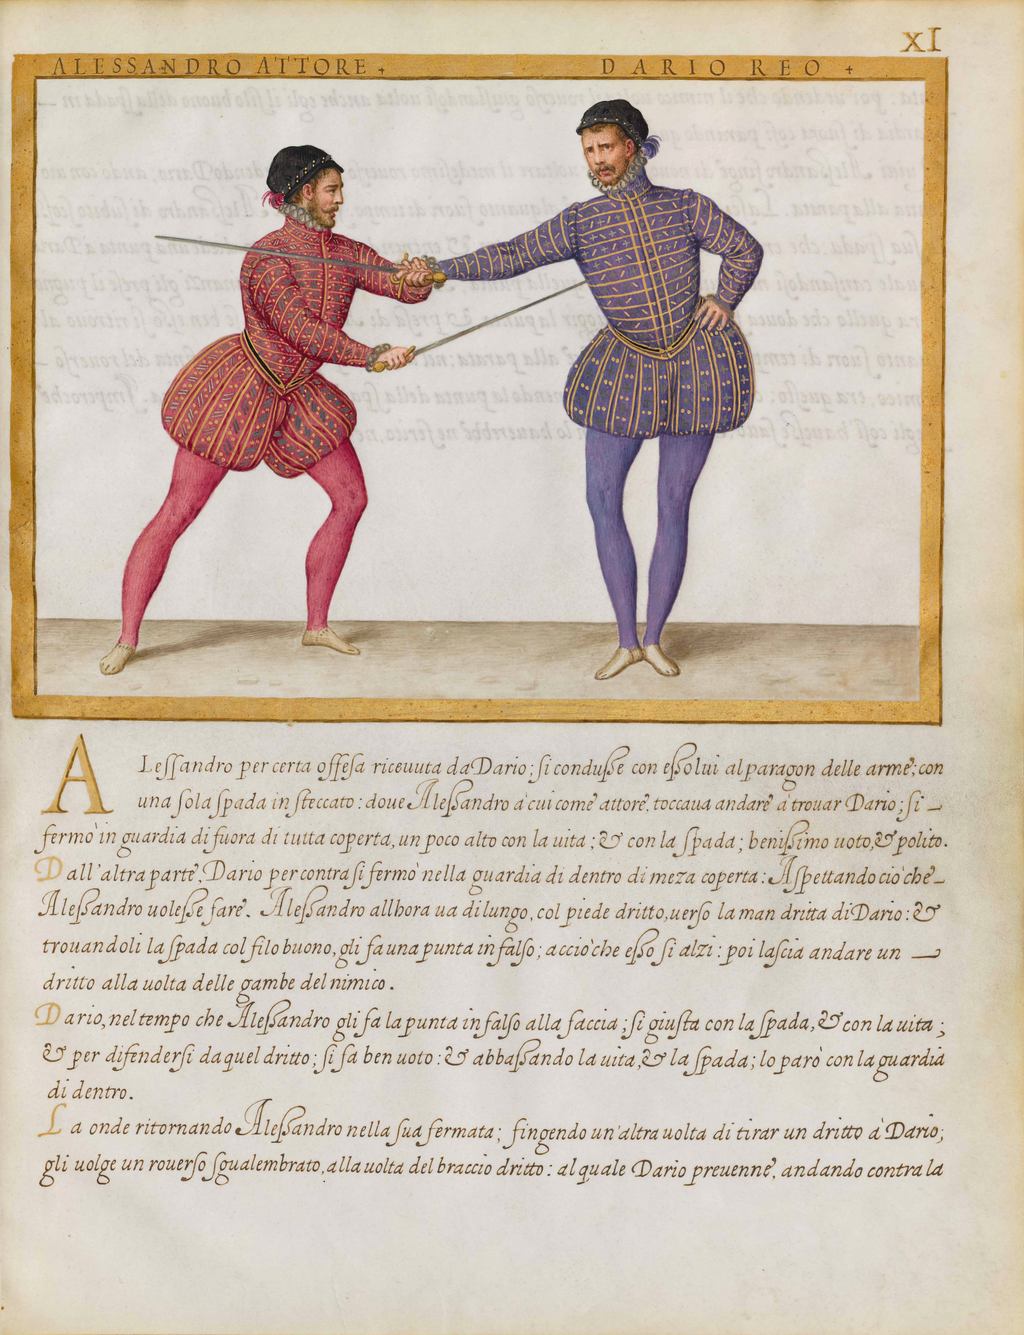 XI
ALESSANDRO ATTORE + DARIO REO +
ALeſſandro per certa offeſa riceuuta da Dario; ſi conduſſe con eſſolui al paragon delle arme; con
una ſola ſpada in ſteccato: doue Aleſſandro à cui come attore, toccaua andare à trouar Dario; ſi
fermò in guardia di fuora di tutta coperta, un poco alto con la uita; & con la ſpada; beniſſimo uoto, & polito.
Dall'altra parte, Dario per contra ſi fermò nella guardia di dentro di meza coperta: Aſpettando ciò che
Aleſſandro uoleſſe fare. Aleſſandro allhora ua di lungo, col piede dritto, uerſo la man dritta di Dario: &
trouandoli la ſpada col filo buono, gli fa una punta in falſo; acciò che eſſo ſi alzi: poi laſcia andare un
dritto alla uolta delle gambe del nimico.
Dario, nel tempo che Aleſſandro gli fa la punta in falſo alla faccia; ſi giuſta con la ſpada, & con la uita;
& per difenderſi da quel dritto; ſi fa ben uoto: & abbaſſando la uita, & la ſpada; lo parò con la guardia
di dentro.
La onde ritornando Aleſſandro nella ſua fermata; fingendo un'altra uolta di tirar un dritto à Dario;
gli uolge un rouerſo ſgualembrato, alla uolta del braccio dritto: al quale Dario preuenne, andando contra la